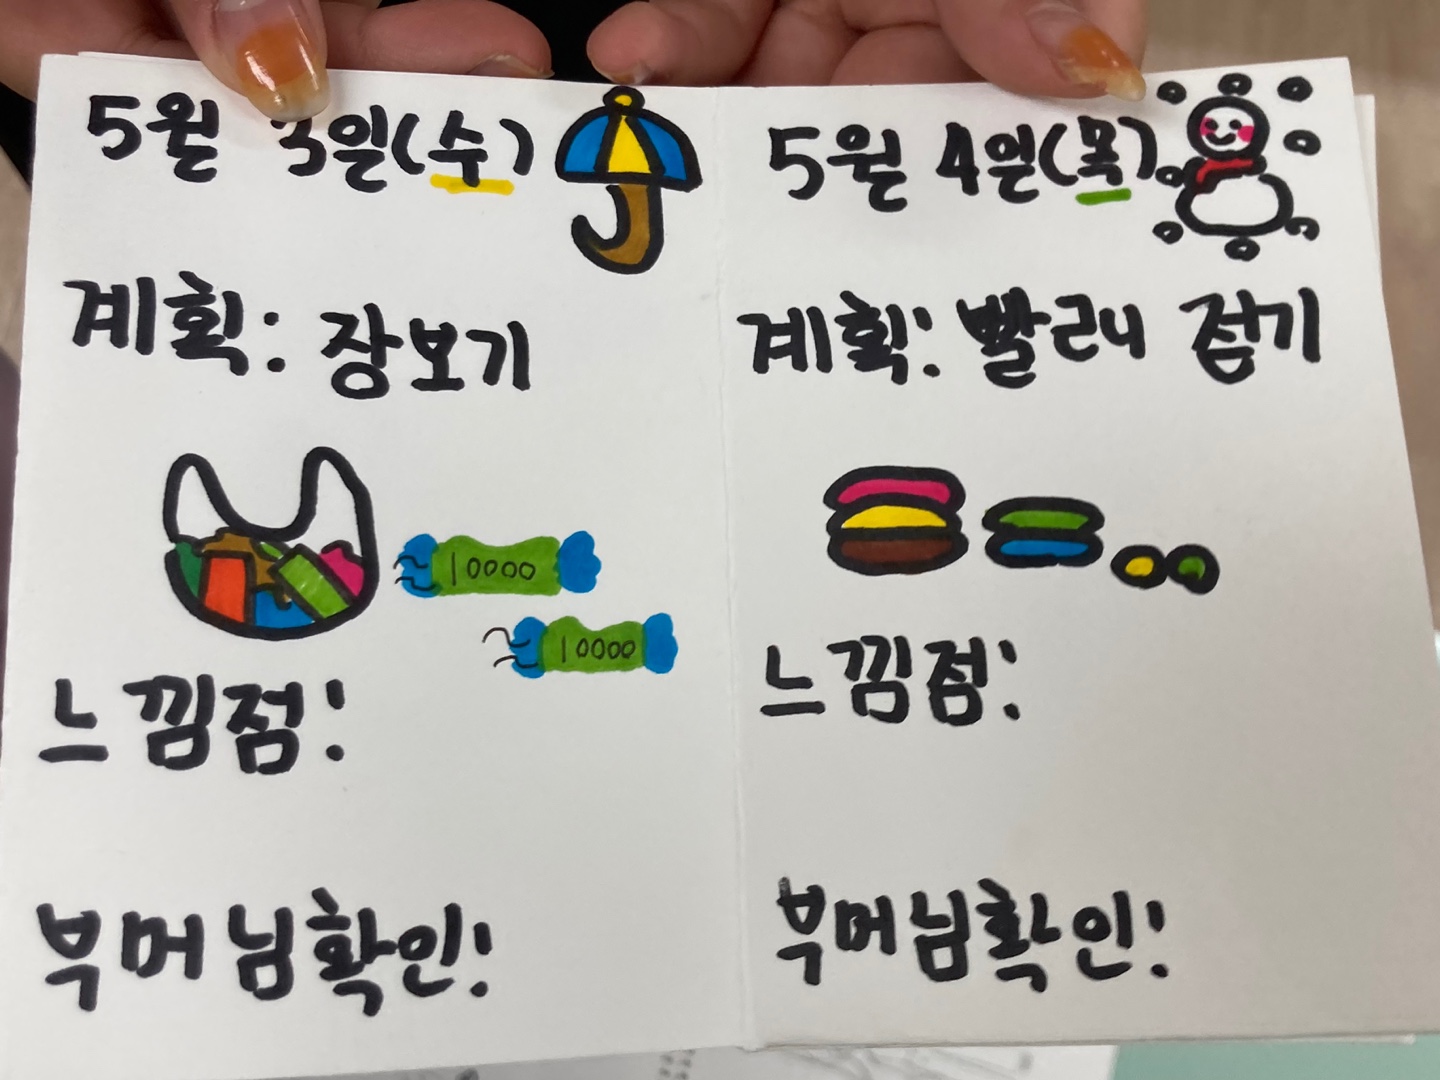 5월 3일(수)
계획: 장보기
10000
10000
느낌점:
부머님확인:
5월 4일(목)
계획: 빨래 접기
느낌점:
부머님확인: